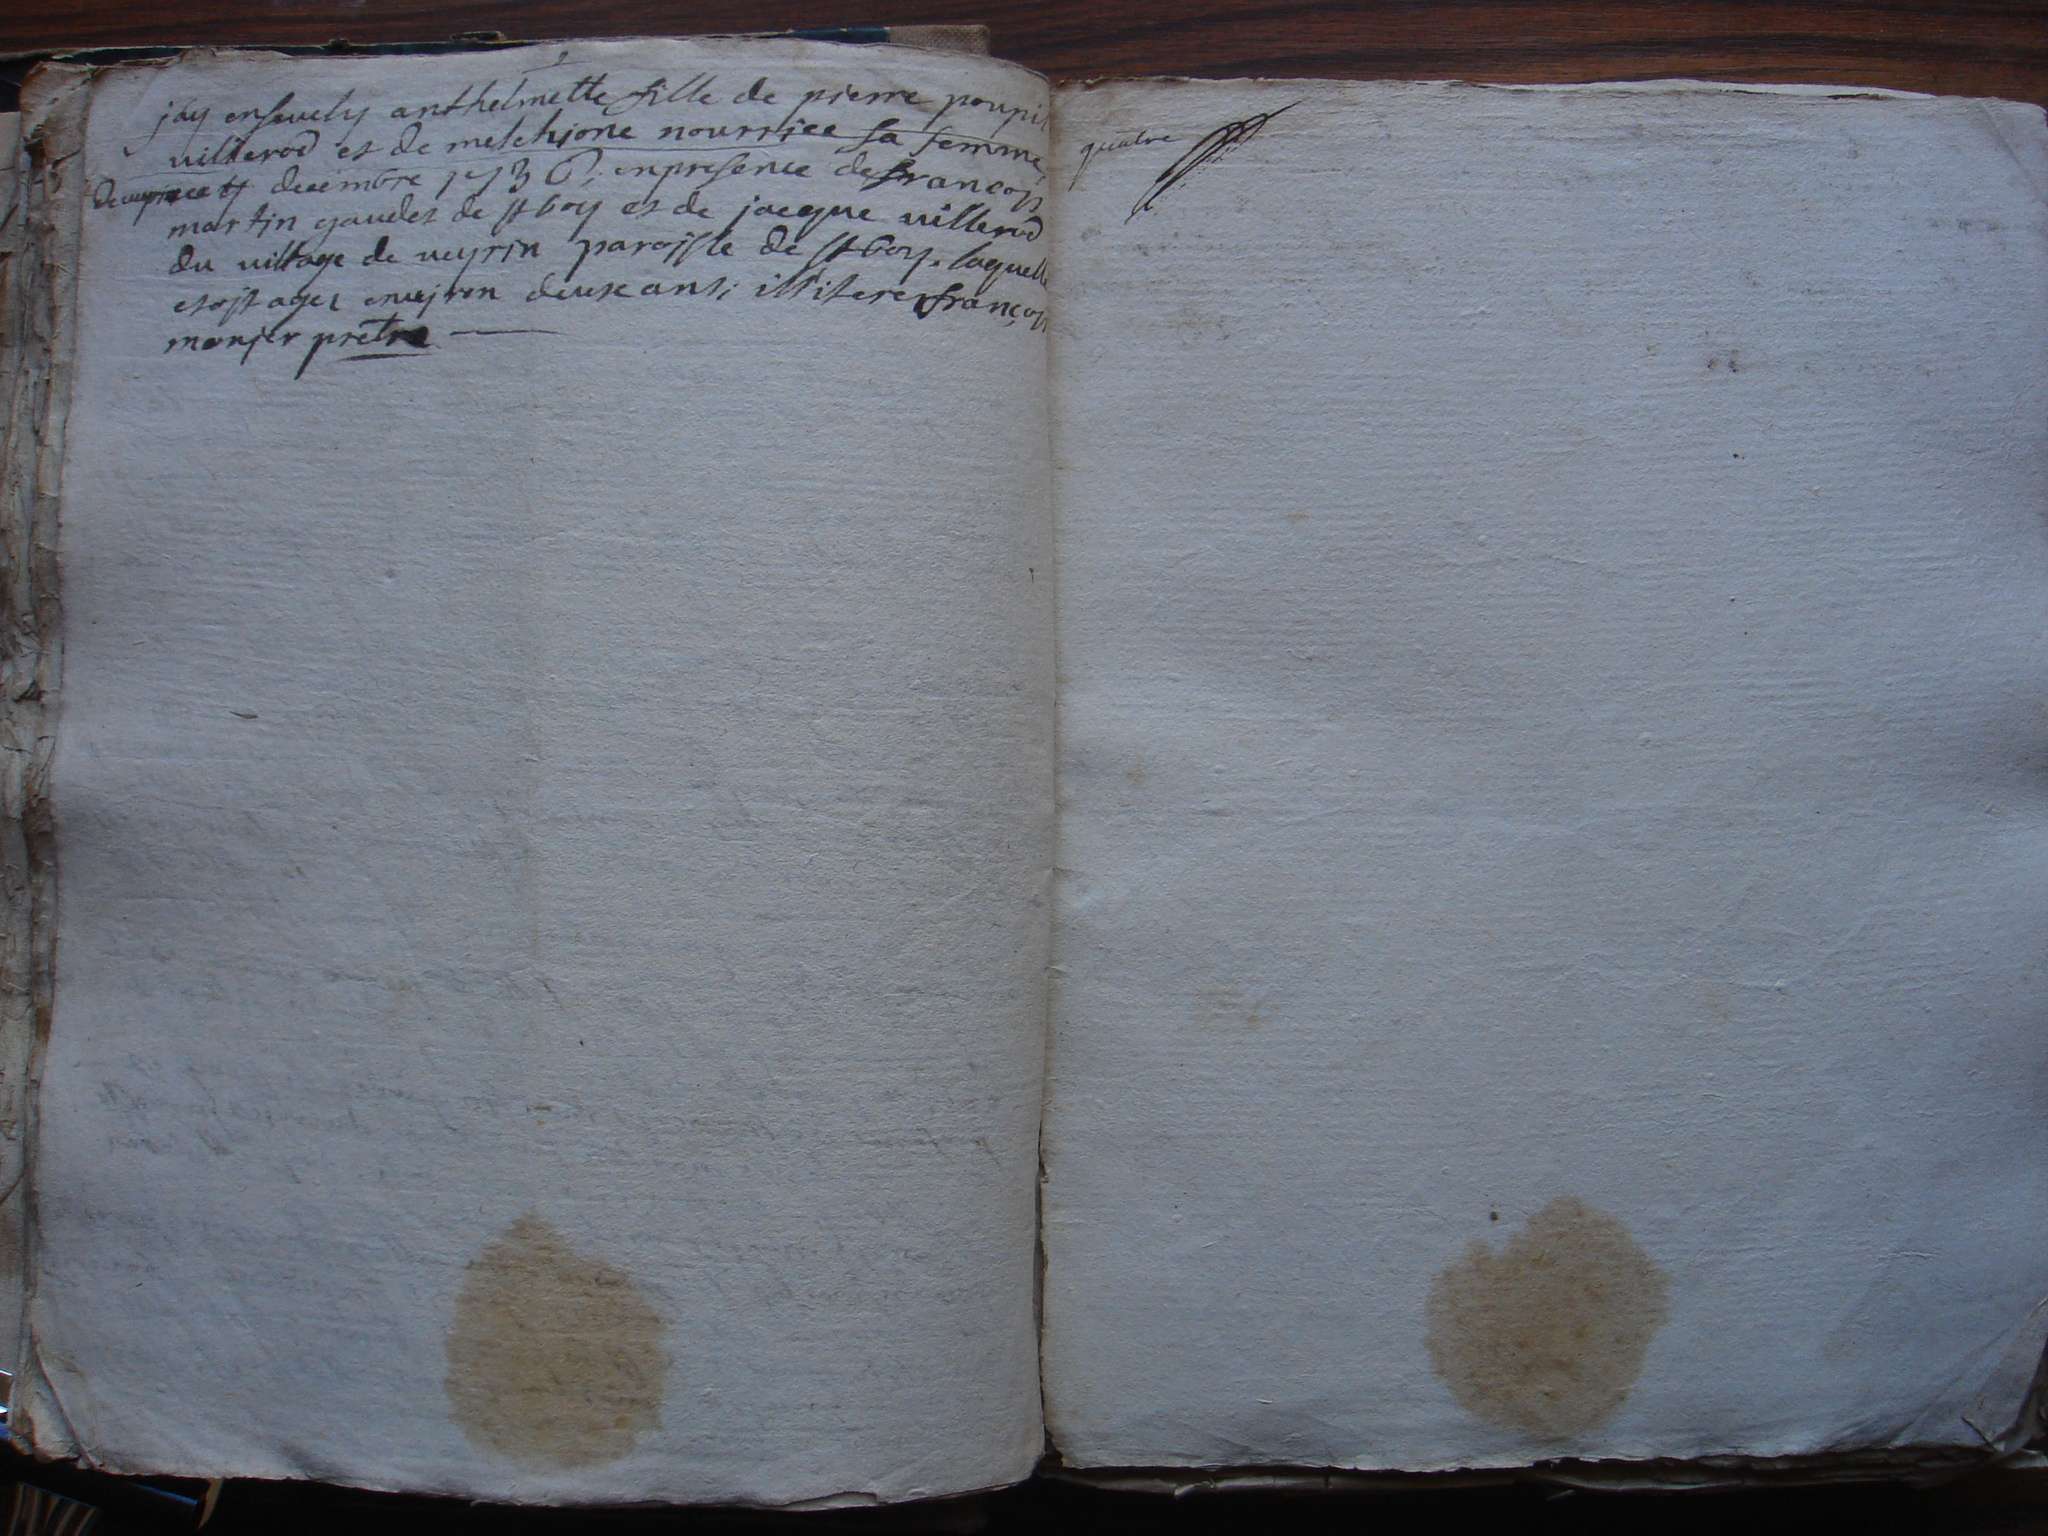 jay ensevely anthelmette fille de pierre poupi
villerod et de melchione nourrice sa femme
decembre 1736, en presence de françois
martin gaudet de st boy et de jacque villerod
du village de veyrin paroisse de st boy. laquelle
estoit agee environ deux ans, illiteres françois
monier pretre
quatre